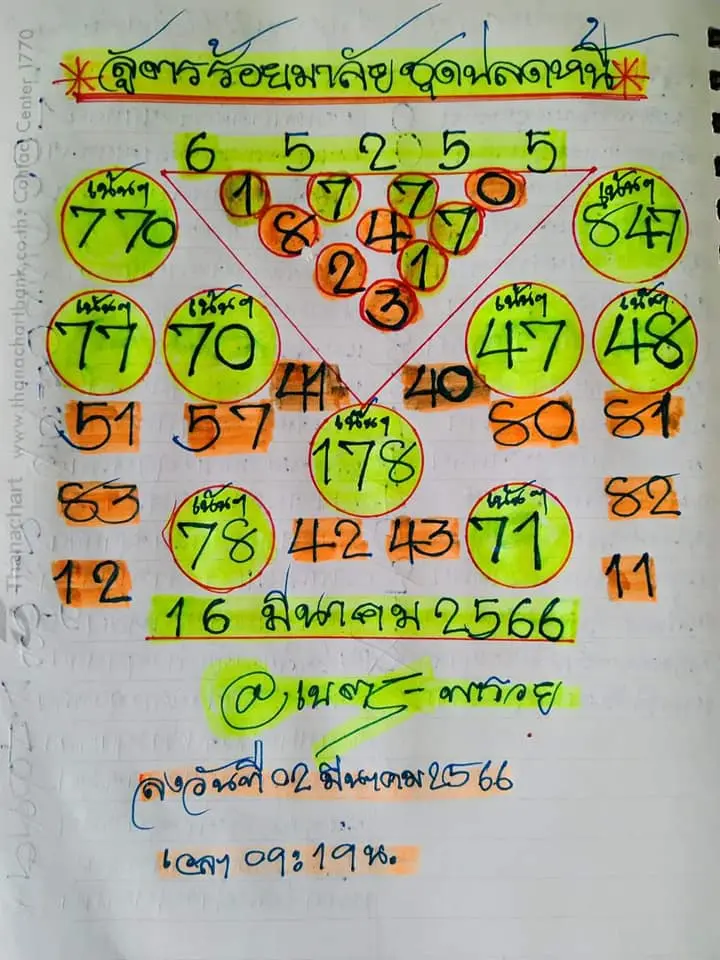 สูตรร้อยมาลัย ชุดปลดหนี้
6 5 2 5 5
1 7 7 0
8 4 7
2 1
3
เน้นๆ 770
เน้นๆ 847
เน้นๆ 77
เน้นๆ 70
เน้นๆ 47
เน้นๆ 48
41 40
51 57 80 81
เน้นๆ 178
83 82
เน้นๆ 78
42 43
เน้นๆ 71
12 11
16 มีนาคม 2566
ลงวันที่ 02 มีนาคม 2566
เวลา 09:19 น.
Thanachart www.thanachartbank.co.th: Contact Center 1770